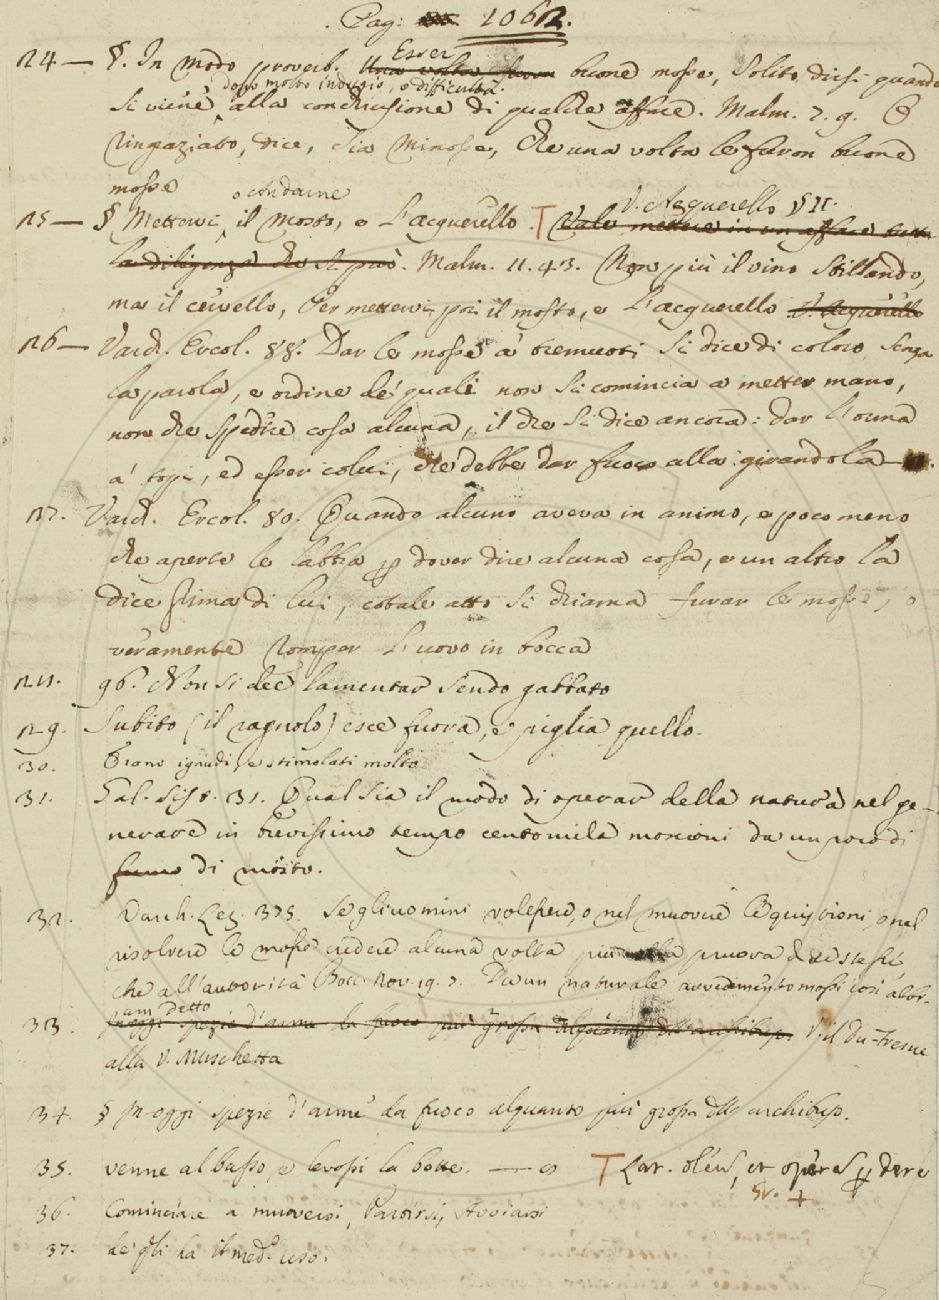 Pag: 1062.
24 — §. In modo proverb. Esser Una volta furon buone mosse, solito dirsi quando
dopo molto indugio, o difficultà.
si viene alla conchiusione di qualche affare. Malm. 7. 9. E
ringraziato, dice, sia Minosse, che una volta le furon buone
mosse
o Andarne
25 — § Mettervi il mosto, e l'acquerello. T V. Acquerello § II. Vale mettere in un affare tutta
la diligenza che si può. Malm. 11. 43. Non più il vino stillando,
ma il cervello, Per mettervi poi il mosto, e l'acquerello V. Acquerello
26 — Varch. Ercol. 88. Dar le mosse a' tremuoti si dice di coloro, senza
la parola, e ordine de' quali non si comincia a metter mano,
non che spedire cosa alcuna, il che si dice ancora: dar l'orma
a' topi, ed esser colui, che debbe dar fuoco alla girandola
27. Varch. Ercol. 80. Quando alcuno aveva in animo, e poco meno
che aperte le labbra p dover dire alcuna cosa, e un altro la
dice prima di lui, cotale atto si chiama furar le mosse, o
veramente romper l'uovo in bocca
28. 96. Non si dee lamentar sendo gabbato
29. Subito (il ragnolo) esce fuora, e piglia quello.
30. Erano ignudi, e stimolati molto
31. Gal. Sist. 31. Qual sia il modo di operar della natura nel ge-
nerare in brevissimo tempo centomila moscioni da un poco di
fumo di mosto.
32. Varch. Lez. 375. Se gli uomini volessero, o nel muovere le quistioni, o nel
risolvere le mosse credere alcuna volta più alla pruova di se stessi,
che all'autorità Bocc. Nov. 19. 7. Da un naturale avvedimento mossi così albi-
am detto
33. p oggi spezie d'arme da fuoco più grossa alquanto dell'archibuso V. il Du-Fresne
alla V. Muschetta
34. § p oggi spezie d'arme da fuoco alquanto più grossa dell'archibuso.
35. venne al basso, e levossi la botte. — T Lat. oleũ, et operã p dere
gr. +
36. Cominciare a muoversi, Partirsi, Avviarsi
37. de' gli ha il med.º uso.